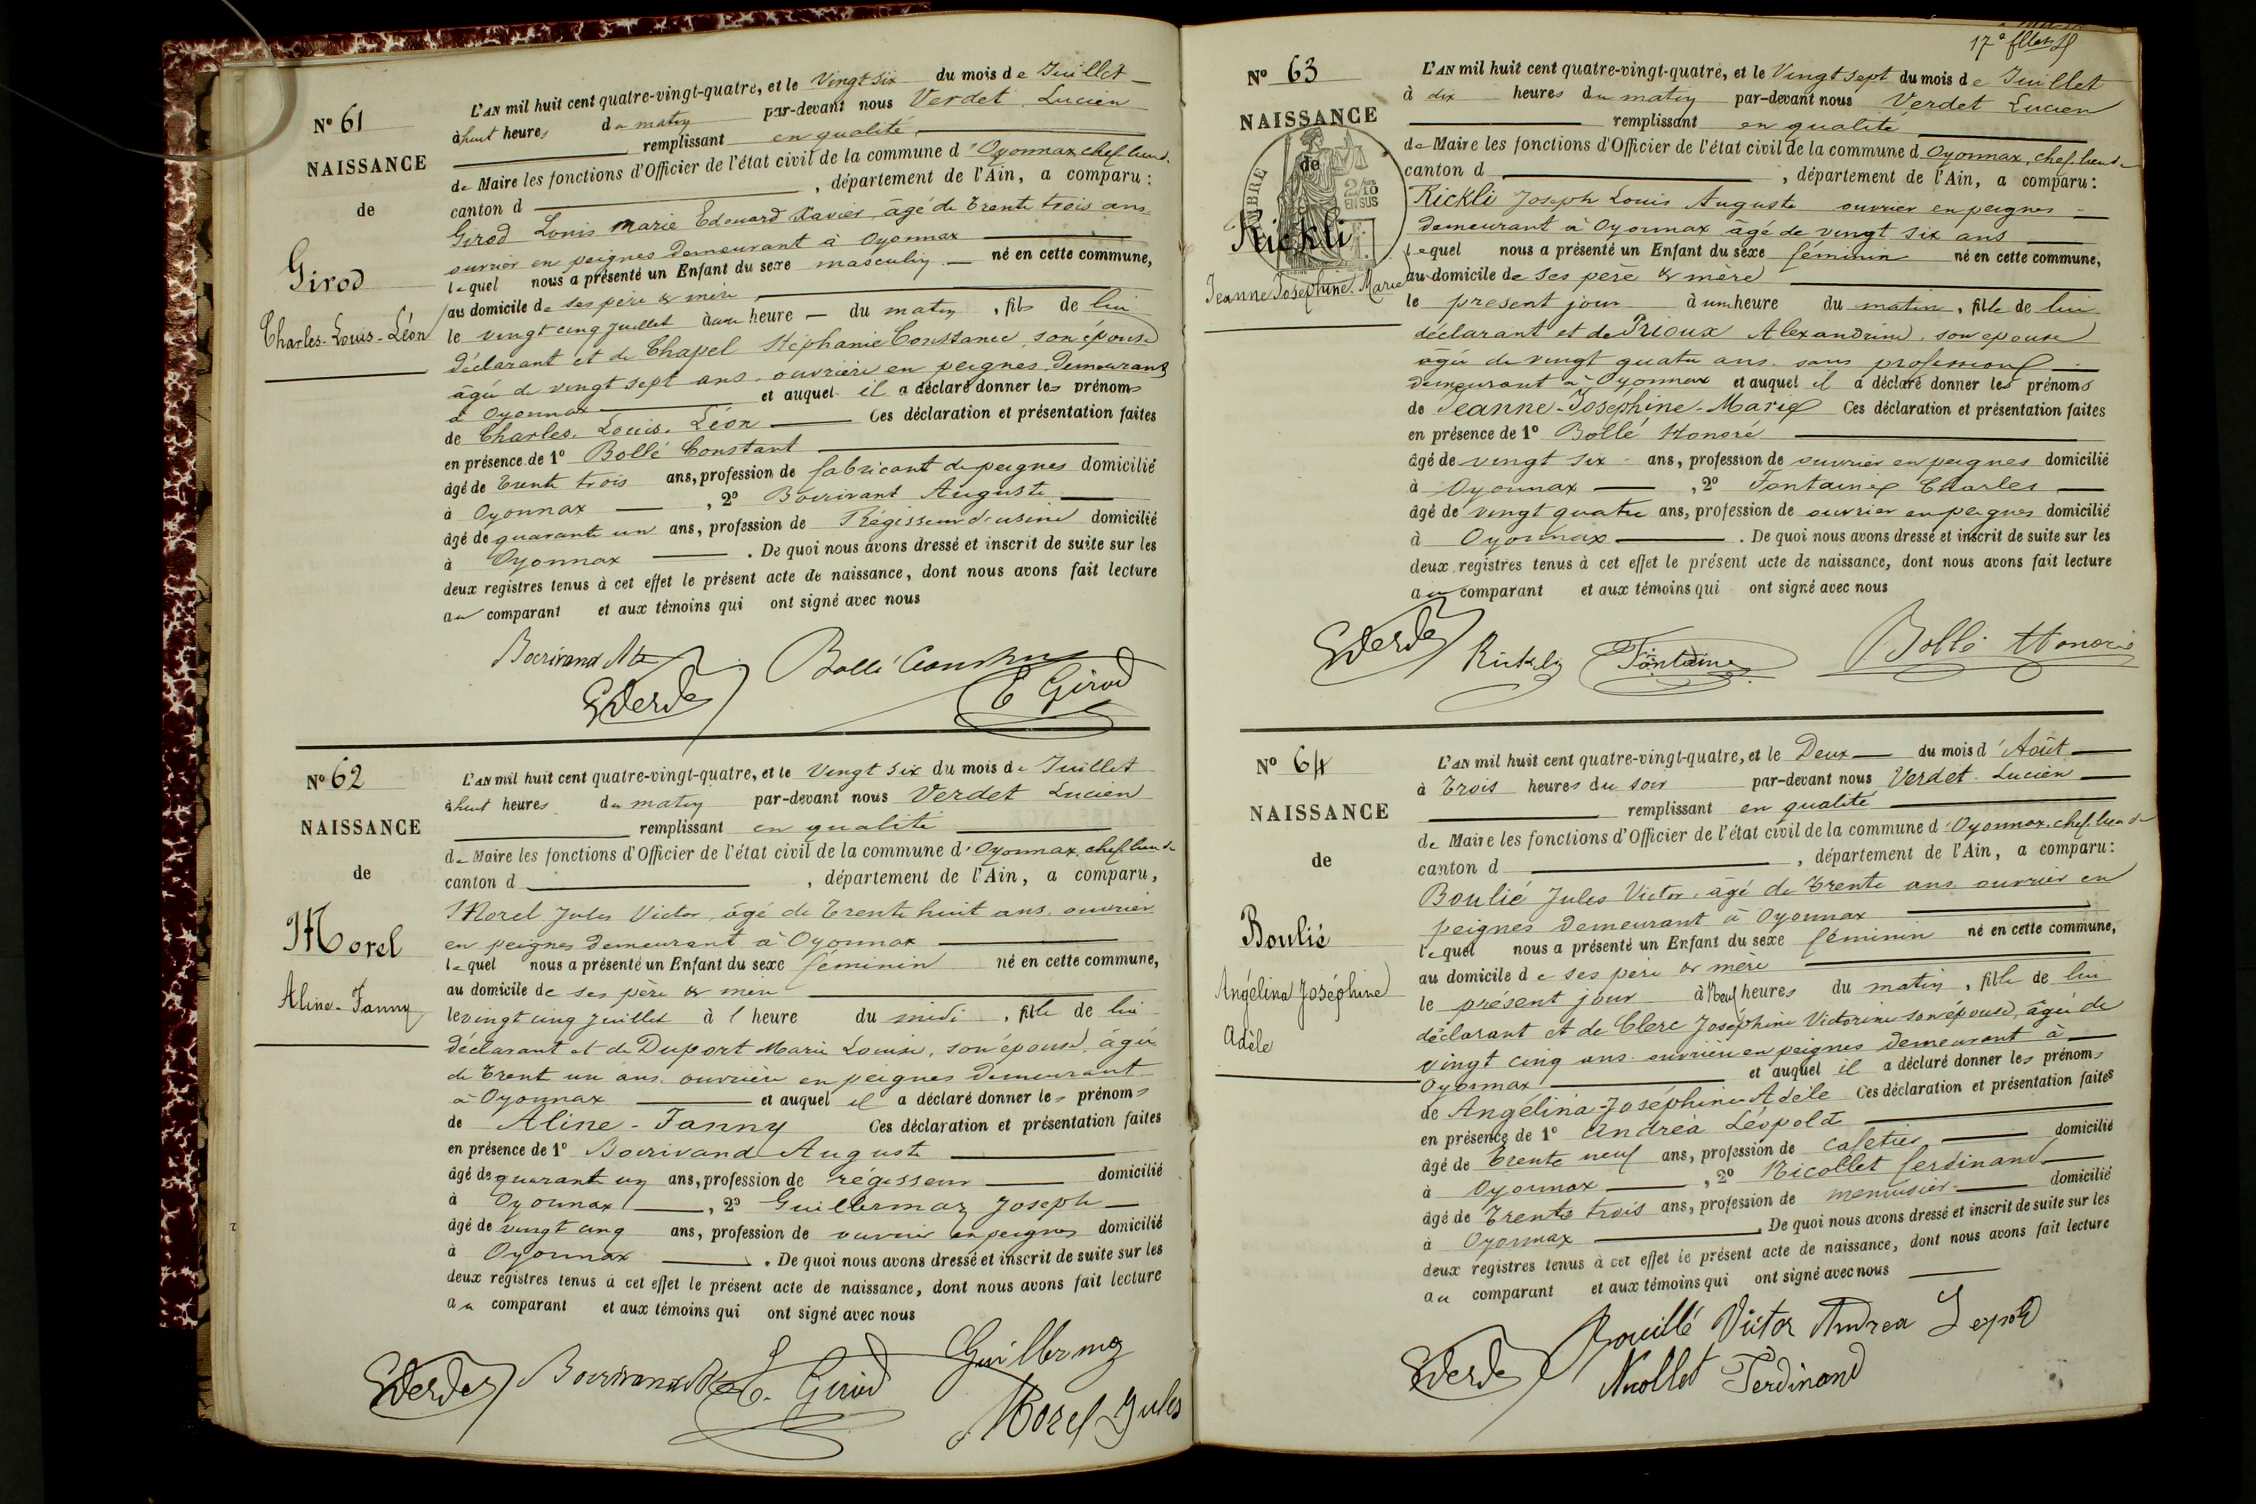 N° 61
NAISSANCE
de
Girod
Charles-Louis-Léon
L'AN mil huit cent quatre-vingt-quatre, et le Vingt six du mois de Juillet
à huit heures du matin par-devant nous Verdet Lucien
remplissant en qualité
de Maire les fonctions d'Officier de l'état civil de la commune d'Oyonnax, chef lieu de
canton d , département de l'Ain, a comparu :
Girod Louis Marie Edouard Xavier, âgé de Trente trois ans
ouvrier en peignes demeurant à Oyonnax
lequel nous a présenté un Enfant du sexe masculin né en cette commune,
au domicile de ses père & mère
le vingt cinq juillet à une heure du matin, fils de lui
déclarant et de Chapel Stéphanie Constance, son épouse
âgée de vingt sept ans, ouvrière en peignes demeurant
à Oyonnax et auquel il a déclaré donner les prénoms
de Charles, Louis, Léon Ces déclaration et présentation faites
en présence de 1° Bollé Constant
âgé de Trente trois ans, profession de fabricant de peignes domicilié
à Oyonnax , 2° Bourivant Auguste
âgé de quarante un ans, profession de Régisseur d'usine domicilié
à Oyonnax . De quoi nous avons dressé et inscrit de suite sur les
deux registres tenus à cet effet le présent acte de naissance, dont nous avons fait lecture
au comparant et aux témoins qui ont signé avec nous
Bollé Constant
Verdet E Girod
N° 62
NAISSANCE
de
Morel
Aline-Fanny
L'AN mil huit cent quatre-vingt-quatre, et le Vingt six du mois de Juillet
à huit heures du matin par-devant nous Verdet Lucien
remplissant en qualité
de Maire les fonctions d'Officier de l'état civil de la commune d'Oyonnax, chef lieu de
canton d , département de l'Ain, a comparu,
Morel Jules Victor, âgé de Trente huit ans, ouvrier
en peignes demeurant à Oyonnax
lequel nous a présenté un Enfant du sexe féminin né en cette commune,
au domicile de ses père & mère
le vingt cinq juillet à l heure du midi, fille de lui
déclarant et de Duport Marie Louise, son épouse, âgée
de Trent un ans, ouvrière en peignes demeurant
à Oyonnax et auquel il a déclaré donner les prénoms
de Aline-Fanny Ces déclaration et présentation faites
en présence de 1° Bourivand Auguste
âgé de quarante un ans, profession de régisseur domicilié
à Oyonnax , 2° Guillermoz Joseph
âgé de vingt cinq ans, profession de ouvrier en peignes domicilié
à Oyonnax . De quoi nous avons dressé et inscrit de suite sur les
deux registres tenus à cet effet le présent acte de naissance, dont nous avons fait lecture
au comparant et aux témoins qui ont signé avec nous
Verdet E. Girod Guillermoz
Morel Jules
N° 63
NAISSANCE
de
Rickli
Jeanne Joséphine Marie
L'AN mil huit cent quatre-vingt-quatre, et le Vingt sept du mois de Juillet
à dix heures du matin par-devant nous Verdet Lucien
remplissant en qualité
de Maire les fonctions d'Officier de l'état civil de la commune d Oyonnax, chef lieu de
canton d , département de l'Ain, a comparu :
Rickli Joseph Louis Auguste ouvrier en peignes
demeurant à Oyonnax âgé de vingt six ans
lequel nous a présenté un Enfant du sexe féminin né en cette commune,
au domicile de ses père & mère
le présent jour à une heure du matin, fille de lui
déclarant et de Prioux Alexandrine, son épouse
âgée de vingt quatre ans, sans profession
demeurant à Oyonnax et auquel il a déclaré donner les prénoms
de Jeanne-Joséphine-Marie Ces déclaration et présentation faites
en présence de 1° Bollé Honoré
âgé de vingt six ans, profession de ouvrier en peignes domicilié
à Oyonnax , 2° Fontaine Charles
âgé de vingt quatre ans, profession de ouvrier en peignes domicilié
à Oyonnax . De quoi nous avons dressé et inscrit de suite sur les
deux registres tenus à cet effet le présent acte de naissance, dont nous avons fait lecture
au comparant et aux témoins qui ont signé avec nous
Verdet Rickly Fontaine Bollé Honoré
N° 64
NAISSANCE
de
Boulié
Angélina Joséphine
Adèle
L'AN mil huit cent quatre-vingt-quatre, et le Deux du mois d'Août
à Trois heures du soir par-devant nous Verdet Lucien
remplissant en qualité
de Maire les fonctions d'Officier de l'état civil de la commune d'Oyonnax, chef lieu de
canton d , département de l'Ain, a comparu :
Boulié Jules Victor, âgé de Trente ans, ouvrier en
peignes demeurant à Oyonnax
lequel nous a présenté un Enfant du sexe féminin né en cette commune,
au domicile de ses père & mère
le présent jour à Neuf heures du matin, fille de lui
déclarant et de Clerc Joséphine Victorine son épouse, âgée de
vingt cinq ans, ouvrière en peignes demeurant à
Oyonnax et auquel il a déclaré donner les prénoms
de Angélina-Joséphine Adèle Ces déclaration et présentation faites
en présence de 1° Andréa Léopold
âgé de Trente neuf ans, profession de cafetier domicilié
à Oyonnax , 2° Nicollet ferdinand
âgé de Trente trois ans, profession de menuisier domicilié
à Oyonnax De quoi nous avons dressé et inscrit de suite sur les
deux registres tenus à cet effet le présent acte de naissance, dont nous avons fait lecture
au comparant et aux témoins qui ont signé avec nous
Verdet Bouillé Victor Andrea Leopold
Nicollet Ferdinand